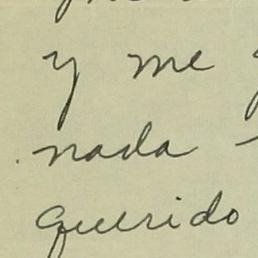 y me
nada
querido